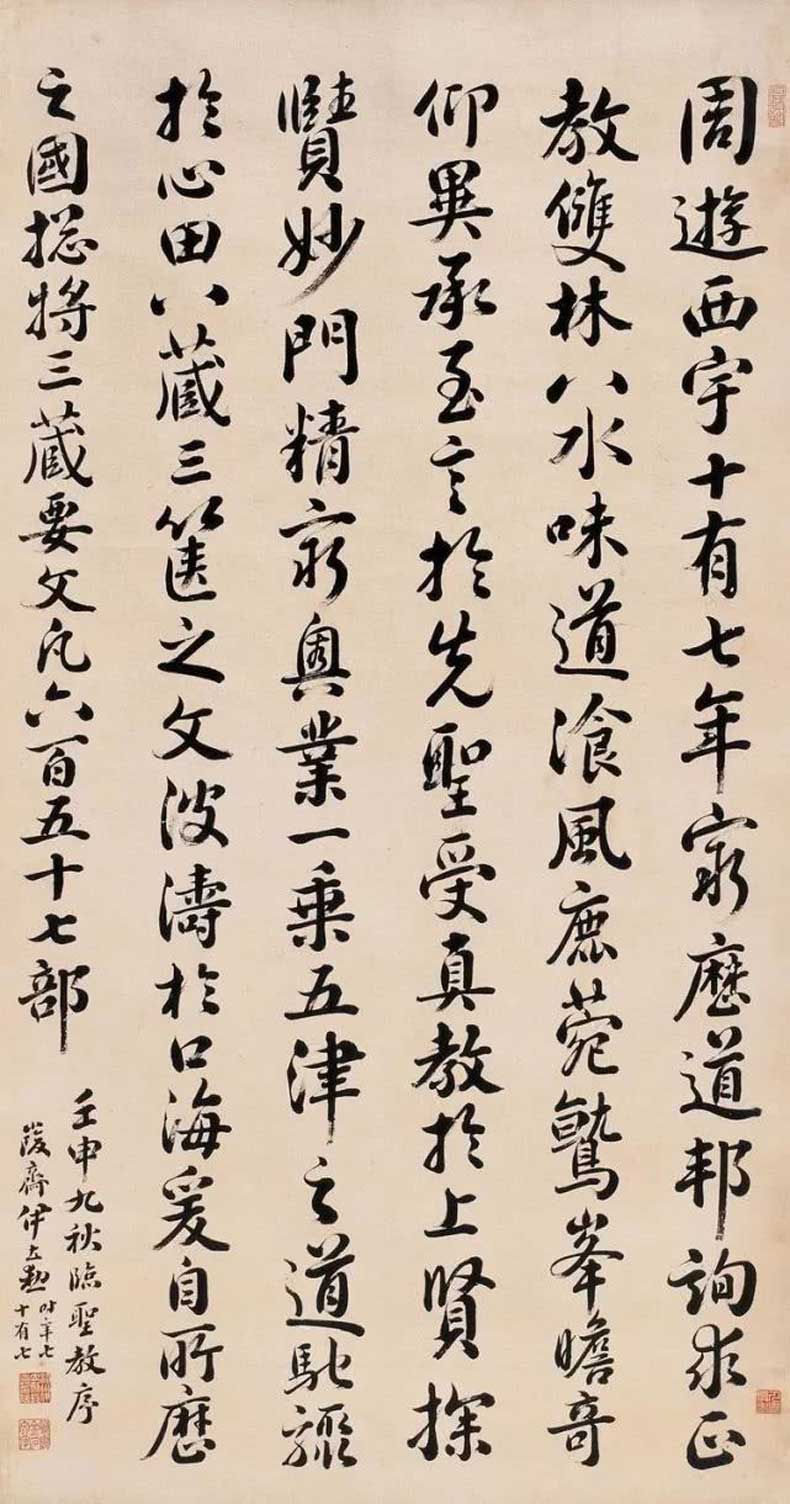 周遊西宇十有七年窮歷道邦詢求正
教雙林八水味道飡風鹿菀鷲峯瞻奇
仰異承至言於先聖受真教於上賢探
賾妙門精窮奧業一乘五津之道馳驟
於心田八藏三篋之文波濤於口海爰自所歷
之國揔將三藏要文凡六百五十七部
壬申九秋臨聖教序
峻齋伊立勳時年七
十有七